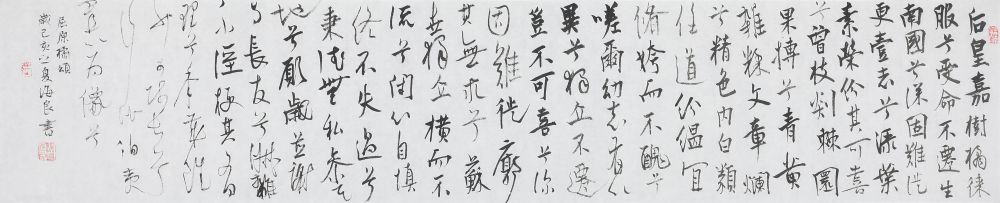 后皇嘉樹橘徠
服兮受命不遷生
南國兮深固難徙
更壹志兮綠葉
素榮紛其可喜
兮曾枝剡棘圜
果摶兮青黃
雜糅文章爛
兮精色內白類
任道兮紛縕宜
脩姱而不醜兮
嗟爾幼志有以
異兮獨立不遷
豈不可喜兮深
固難徙廓
其無求兮蘇
世獨立橫而不
流兮閉心自慎
終不失過兮
秉德無私參天
地兮願歲並謝
與長友兮淑離
不淫梗其有
理兮年歲雖
少可師長兮
行比伯夷
置以為像兮
屈原橘頌
歲己亥之夏海良書